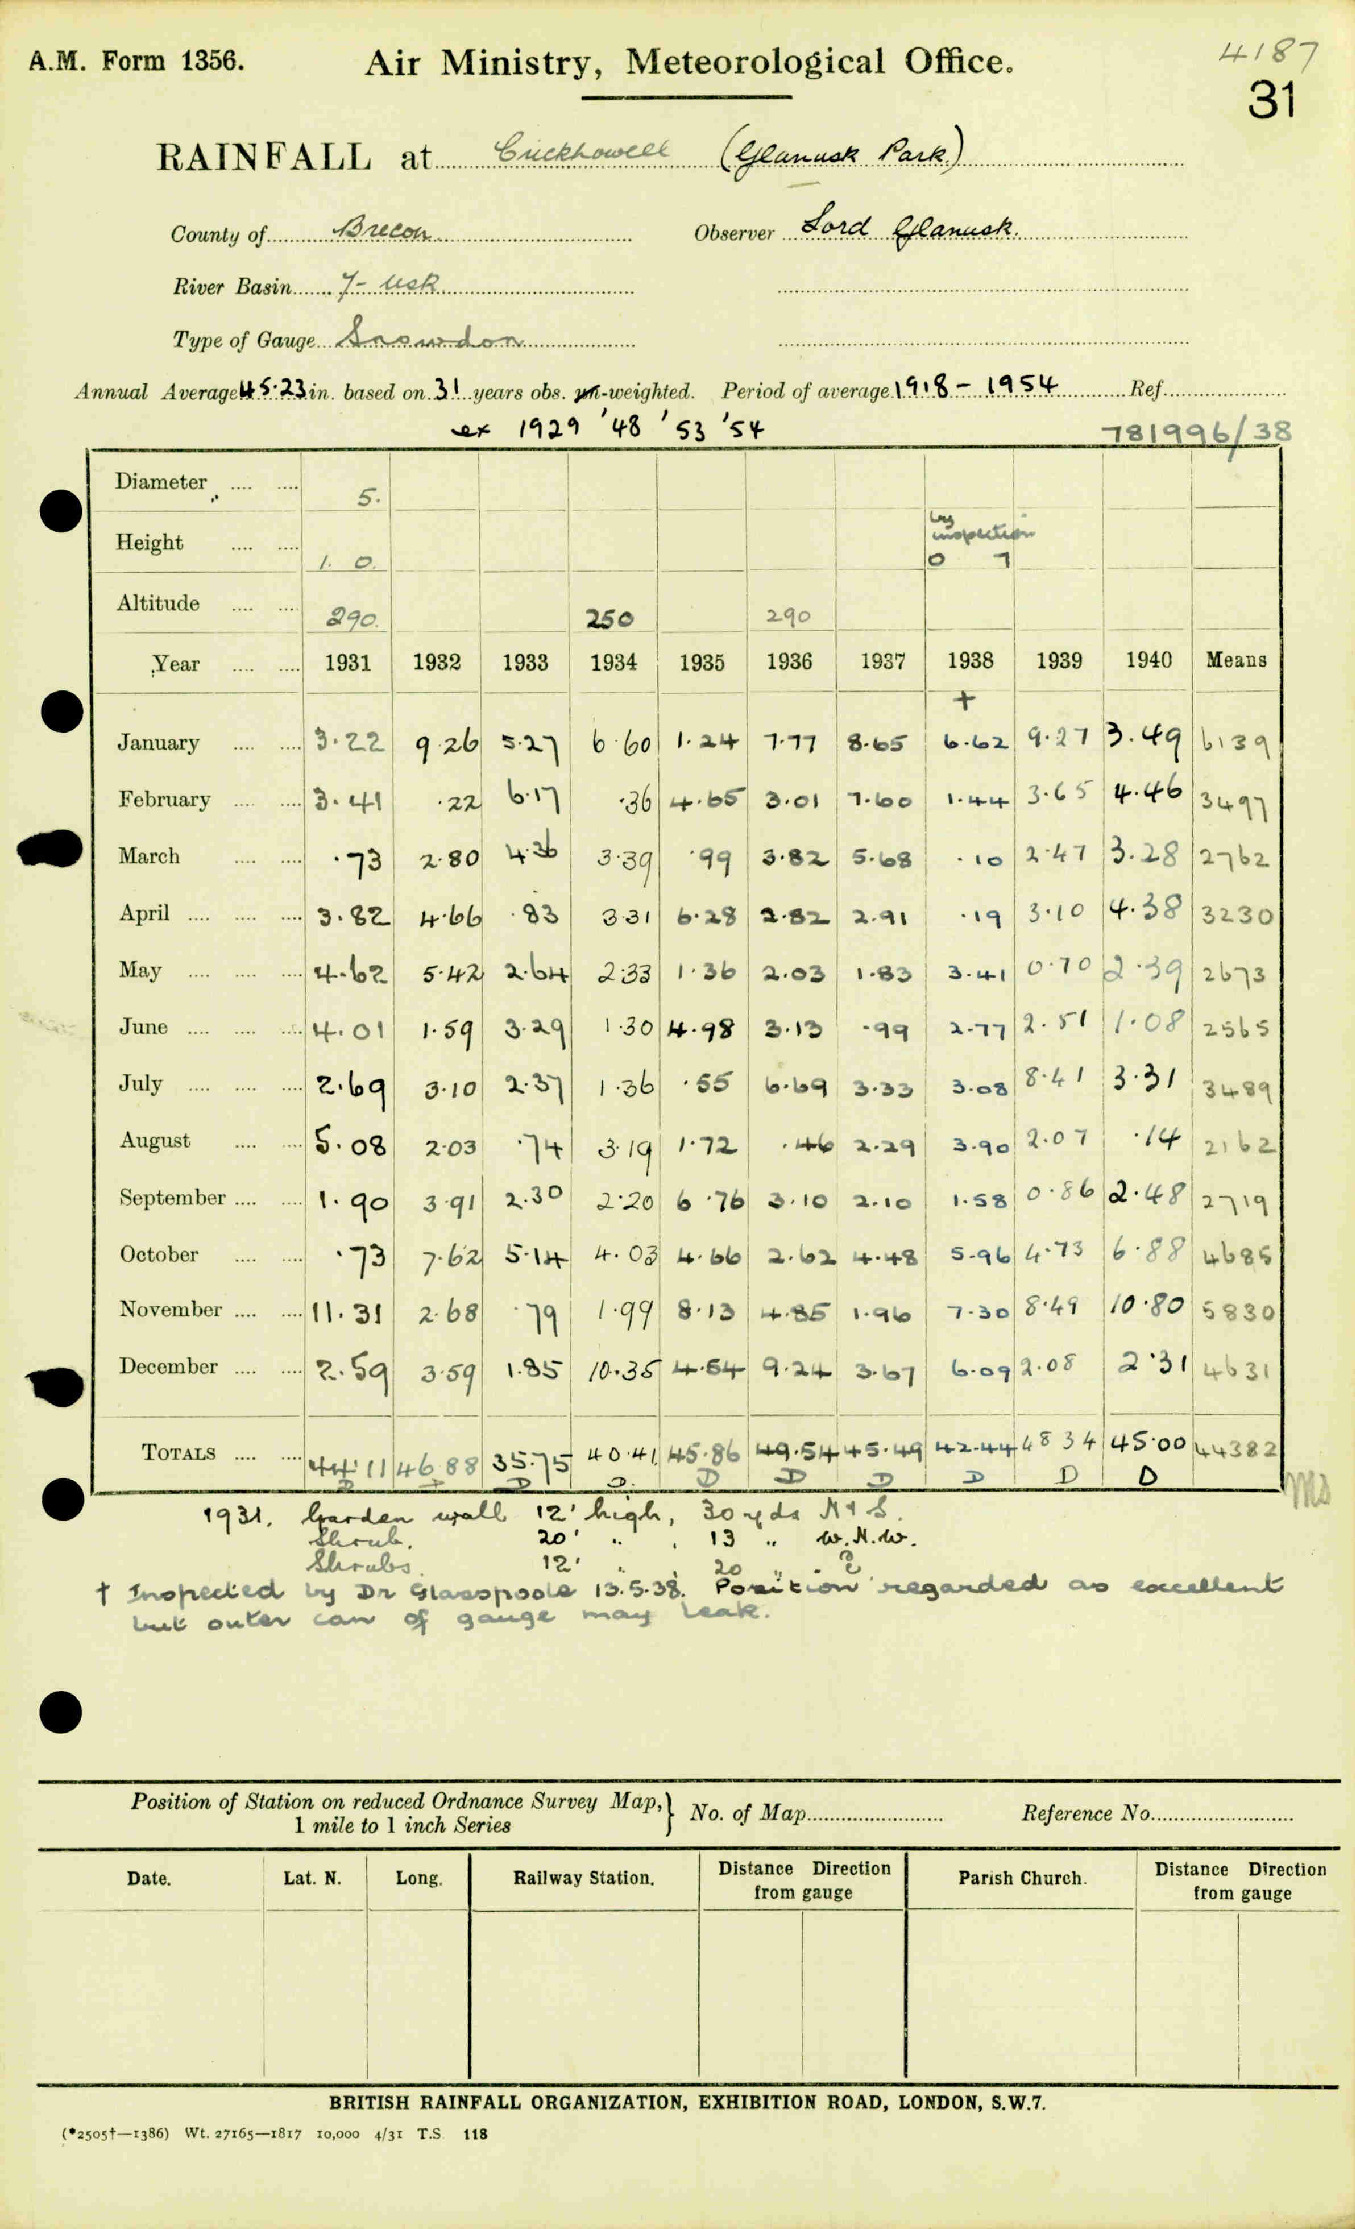 A.M. Form 1356. Air Ministry, Meteorological Office. 4187
31
RAINFALL at Crickhowell (Glanusk Park)
County of Brecon Observer Lord Glanusk.
River Basin 7- Usk
Type of Gauge Snowdon
Annual Average 45.23 in. based on 31 years obs. un-weighted. Period of average 1918 - 1954 Ref.
ex 1929 '48 '53 '54 781996/38
Diameter 5.
Height 1. 0. by inspection 0 7
Altitude 290. 250 290
Year 1931 1932 1933 1934 1935 1936 1937 1938 1939 1940 Means
+
January 3.22 9.26 5.27 6.60 1.24 7.77 8.65 6.62 9.27 3.49 6139
February 3.41 .22 6.17 .36 4.65 3.01 7.60 1.44 3.65 4.46 3497
March .73 2.80 4.36 3.39 .99 3.82 5.68 .10 2.47 3.28 2762
April 3.82 4.66 .83 3.31 6.28 2.82 2.91 .19 3.10 4.38 3230
May 4.62 5.42 2.64 2.33 1.36 2.03 1.83 3.41 0.70 2.39 2673
June 4.01 1.59 3.29 1.30 4.98 3.13 .99 2.77 2.51 1.08 2565
July 2.69 3.10 2.37 1.36 .55 6.69 3.33 3.08 8.41 3.31 3489
August 5.08 2.03 .74 3.19 1.72 .46 2.29 3.90 2.07 .14 2162
September 1.90 3.91 2.30 2.20 6.76 3.10 2.10 1.58 0.86 2.48 2719
October .73 7.62 5.14 4.03 4.66 2.62 4.48 5.96 4.73 6.88 4685
November 11.31 2.68 .79 1.99 8.13 4.85 1.96 7.30 8.49 10.80 5830
December 2.59 3.59 1.85 10.35 4.54 9.24 3.67 6.09 2.08 2.31 4631
TOTALS 44.11 46.88 35.75 40.41 45.86 49.54 45.49 42.44 48 34 45.00 44382
D D D D D D D D D D Ms
1931. Garden wall 12' high, 30 yds N & S.
Shrub. 20' " , 13 " W.N.W.
Shrubs. 12' " , 20 " E
† Inspected by Dr Glasspoole 13.5.38. Position regarded as excellent
but outer can of gauge may leak.
Position of Station on reduced Ordnance Survey Map, } No. of Map Reference No.
1 mile to 1 inch Series
Date. Lat. N. Long. Railway Station. Distance Direction from gauge Parish Church. Distance Direction from gauge
BRITISH RAINFALL ORGANIZATION, EXHIBITION ROAD, LONDON, S.W.7.
(*2505†—1386) Wt. 27165—1817 10,000 4/31 T.S. 118